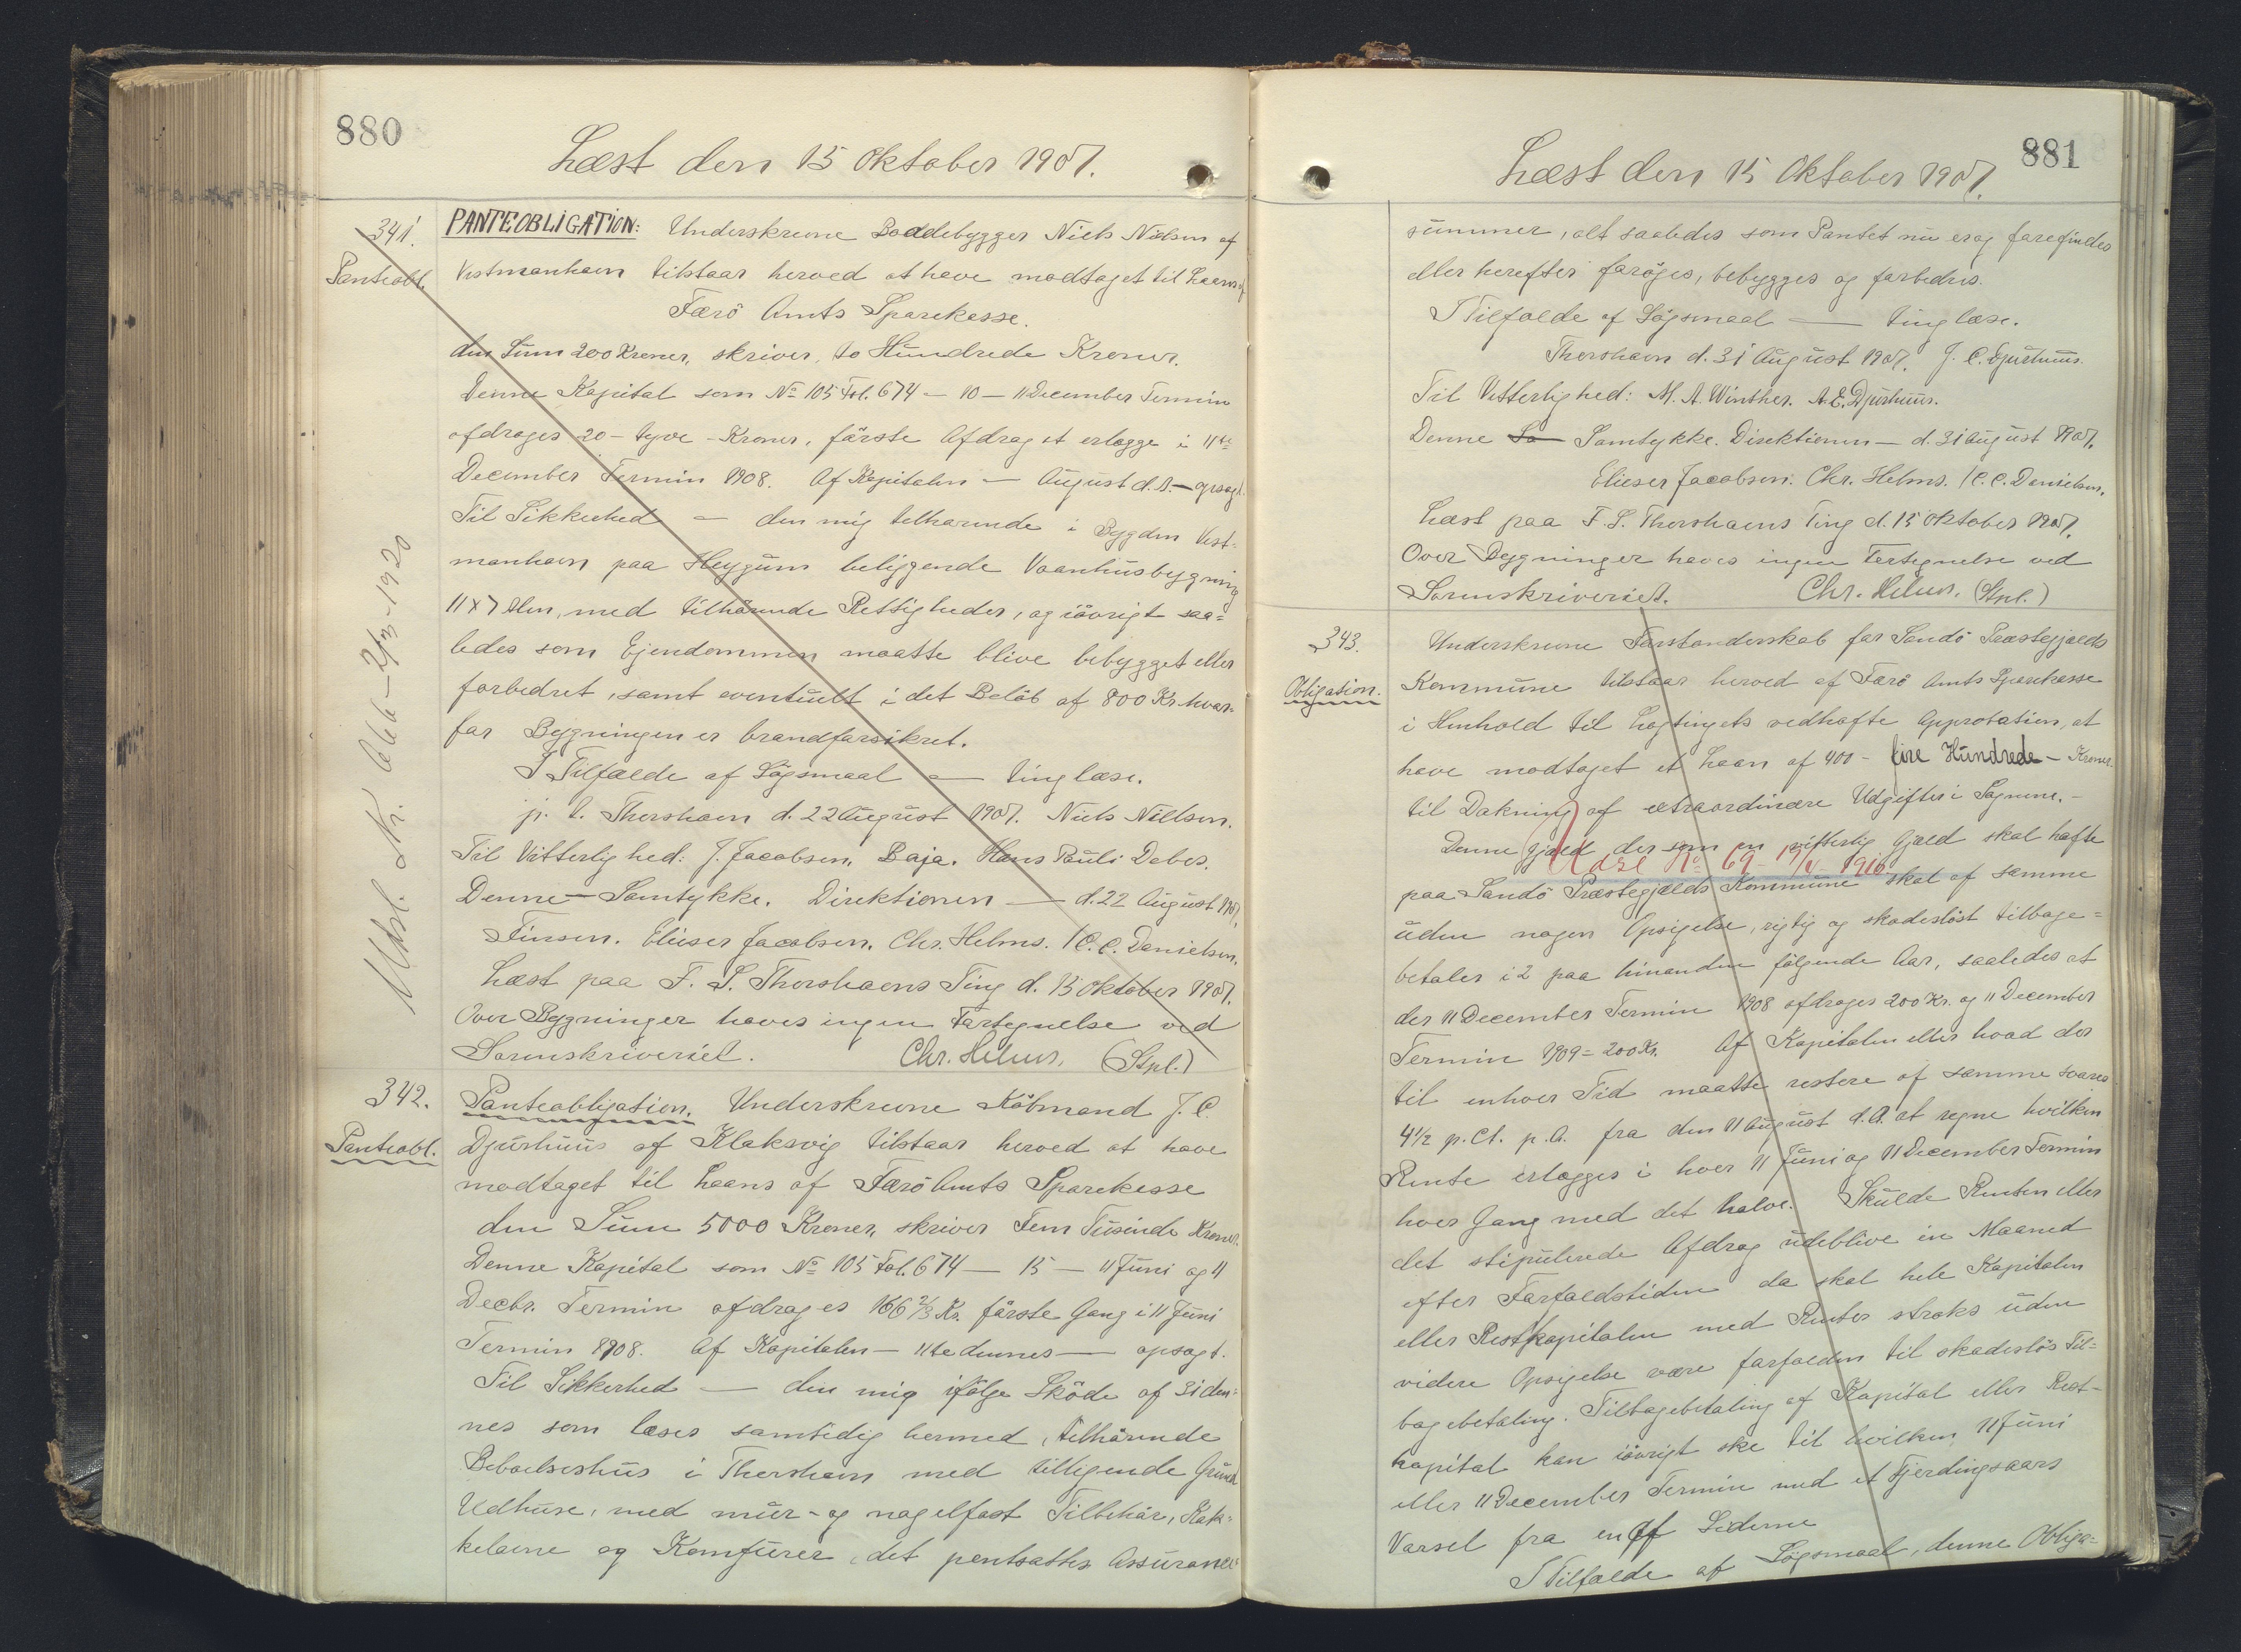 880
Læst den 15 Oktober 1907.
341.
Panteobl.
PANTEOBLIGATION: Underskrevne Baadebygger Niels Nielsen af
Vestmanhavn tilstaar herved at have modtaget til Laans af
Færö Amts Sparekasse.
den Sum 200 Kroner, skriver, to Hundrede Kroner.
Denne Kapital som No 105 Fol. 674 — 10 — 11 December Termin
afdrages 20 - tyve - Kroner, förste Afdrag at erlægge i 11te
December Termin 1908. Af Kapitalen — August d. A. — opsagt.
Til Sikkerhed — den mig tilhörende i Bygden Vest=
manhavn paa Heygum beliggende Vaanhusbygning
11 x 7 Alen, med tilhörende Rettigheder, og iövrigt saa=
ledes som Ejendommen maatte blive bebygget eller
forbedret, samt eventuelt i det Belöb af 800 Kr. hvor=
for Bygningen er brandforsikret.
I Tilfælde af Lögsmaal — tinglæse.
p. t. Thorshavn d. 22 August 1907. Niels Nielsen.
Til Vitterlighed: J. Jacobsen, Baja. Hans Pauli Debes.
Denne — Samtykke. Direktionen — d. 22 August 1907.
Finsen. Elieser Jacobsen. Chr. Helms. / C. C. Danielsen.
Læst paa F. S. Thorshavns Ting d. 15 Oktober 1907.
Over Bygninger haves ingen Fortegnelse ved
Sorenskriveriet. Chr. Helms. (Stpl.)
Udsl. Nr. 266 — 2/3 — 1920
342.
Panteobl.
Panteobligation. Underskrevne Köbmand J. C.
Djurhuus af Klaksvig tilstaar herved at have
modtaget til Laans af Færö Amts Sparekasse
den Sum 5000 Kroner, skriver Fem Tusinde Kroner.
Denne Kapital som No 105 Fol. 674 — 15 — 11 Juni og 11
Decbr. Termin afdrages 166 2/3 Kr. förste Gang i 11 Juni
Termin 1908. Af Kapitalen — 11te dennes — opsagt.
Til Sikkerhed — den mig ifölge Sköde af 31 den=
nes som læses samtidig hermed, tilhörende
Beboelseshus i Thorshavn med tilligende Grund
Udhuse, med mur- og nagelfast Tilbehör, Kak=
kelovne og Komfurer, det pantsattes Assurance=
881
Læst den 15 Oktober 1907.
summer, alt saaledes som Pantet nu er og forefindes
eller herefter foröges, bebygges og forbedres.
I Tilfælde af Lögsmaal — tinglæse.
Thorshavn d. 31 August 1907. J. C. Djurhuus.
Til Vitterlighed: M. A. Winther. A. E. Djurhuus.
Denne Sa Samtykke. Direktionen — d. 31 August 1907.
Elieser Jacobsen. Chr. Helms. / C. C. Danielsen.
Læst paa F. S. Thorshavns Ting d. 15 Oktober 1907.
Over Bygninger haves ingen Fortegnelse ved
Sorenskriveriet. Chr. Helms. (Stpl.)
343.
Obligation.
Underskrevne Forstanderskab for Sandö Præstegjælds
Kommune tilstaar herved af Færö Amts Sparekasse
i Henhold til Lagtingets vedhæfte Approbation, at
have modtaget et Laan af 400 - fire Hundrede - Kroner.
til Dækning af extraordinære Udgifter i Sognene. -
Denne Gjæld der som en vitterlig Gjæld skal hæfte
Udsl No 69 - 19/4 1910.
paa Sandö Præstegjælds Kommune skal af samme
uden nogen Opsigelse, rigtig og skadeslöst tilbage=
betales i 2 paa hinanden fölgende Aar, saaledes at
der 11 December Termin 1908 afdrages 200 Kr. og 11 December
Termin 1909 = 200 Kr. Af Kapitalen eller hvad der
til enhver Tid maatte restere af samme svares
4 1/2 p. Ct. p. A. fra den 11 August d. A. at regne hvilken
Rente erlægges i hver 11 Juni og 11 December Termin
hver Gang med det halve. Skulde Renten eller
det stipulerede Afdrag udeblive en Maaned
efter Forfaldstiden da skal hele Kapitalen
eller Restkapitalen med Renter straks uden
videre Opsigelse være forfalden til skadeslös Til=
bagebetaling. Tilbagebetaling af Kapital eller Rest-
kapital kan iövrigt ske til hvilken 11 Juni
eller 11 December Termin med et Fjerdingaars
Varsel fra en af Siderne
I Tilfælde af Lögsmaal, denne Obliga=